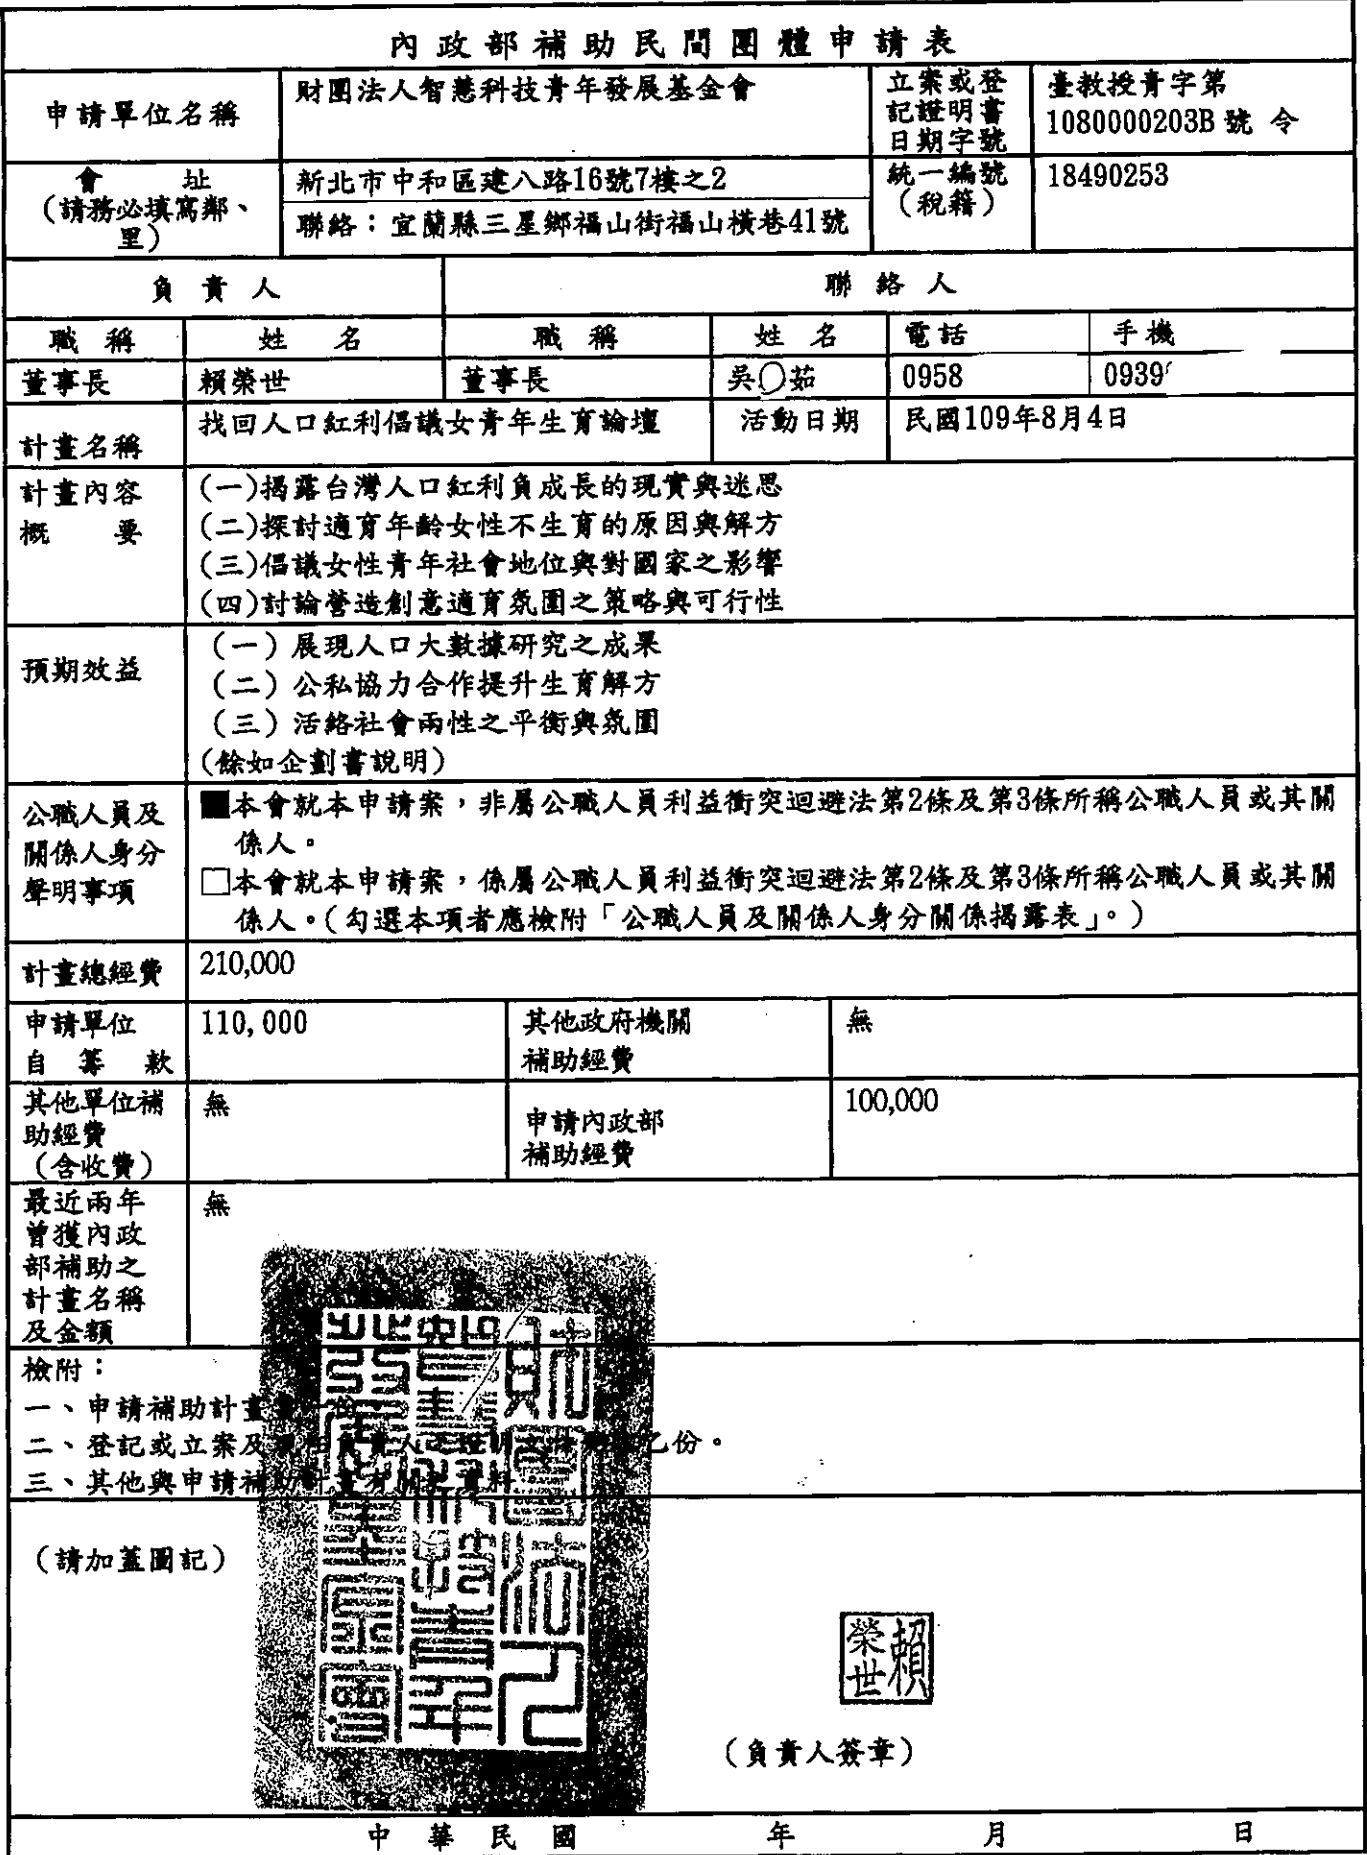 內政部補助民間團體申請表
申請單位名稱
財團法人智慧科技青年發展基金會
立案或登
記證明書
日期字號
臺教授青字第
1080000203B 號 令
會 址
(請務必填寫鄰、
里)
新北市中和區建八路16號7樓之2
聯絡：宜蘭縣三星鄉福山街福山橫巷41號
統一編號
(稅籍)
18490253
負 責 人
聯 絡 人
職 稱
姓 名
職 稱
姓 名
電話
手機
董事長
賴榮世
董事長
吳〇茹
0958
0939
計畫名稱
找回人口紅利倡議女青年生育論壇
活動日期
民國109年8月4日
計畫內容
概 要
(一)揭露台灣人口紅利負成長的現實與迷思
(二)探討適育年齡女性不生育的原因與解方
(三)倡議女性青年社會地位與對國家之影響
(四)討論營造創意適育氛圍之策略與可行性
預期效益
(一) 展現人口大數據研究之成果
(二) 公私協力合作提升生育解方
(三) 活絡社會兩性之平衡與氛圍
(餘如企劃書說明)
公職人員及
關係人身分
聲明事項
■本會就本申請案，非屬公職人員利益衝突迴避法第2條及第3條所稱公職人員或其關
係人。
□本會就本申請案，係屬公職人員利益衝突迴避法第2條及第3條所稱公職人員或其關
係人。(勾選本項者應檢附「公職人員及關係人身分關係揭露表」。)
計畫總經費
210,000
申請單位
自 籌 款
110,000
其他政府機關
補助經費
無
其他單位補
助經費
(含收費)
無
申請內政部
補助經費
100,000
最近兩年
曾獲內政
部補助之
計畫名稱
及金額
無
檢附：
一、申請補助計畫
二、登記或立案及 負責人 乙份。
三、其他與申請補助計畫有關 資料
(請加蓋圖記)
賴
榮世
(負責人簽章)
中 華 民 國 年 月 日